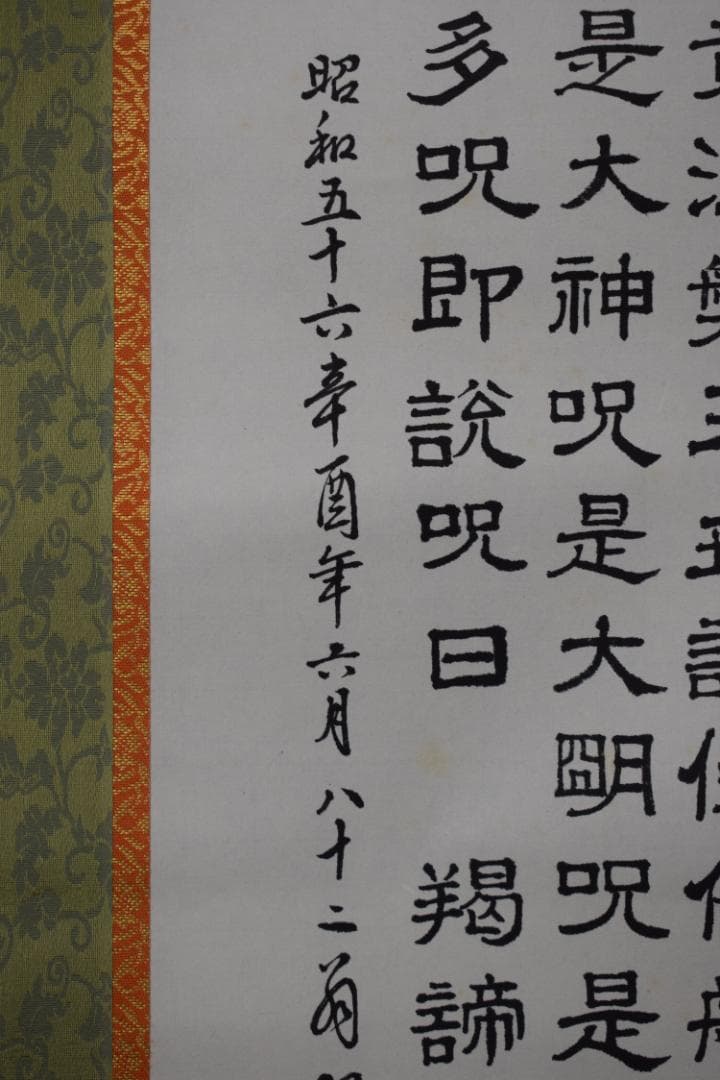 是大神呪是大朙呪是
多呪即說呪曰 羯諦
昭和五十六辛酉年六月 八十二翁